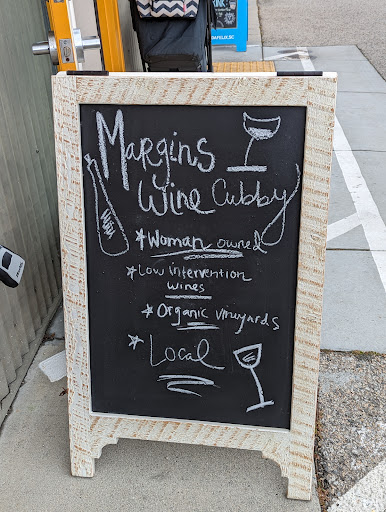 Margins
Wine Cubby
Woman owned
Low intervention
wines
Organic vineyards
Local